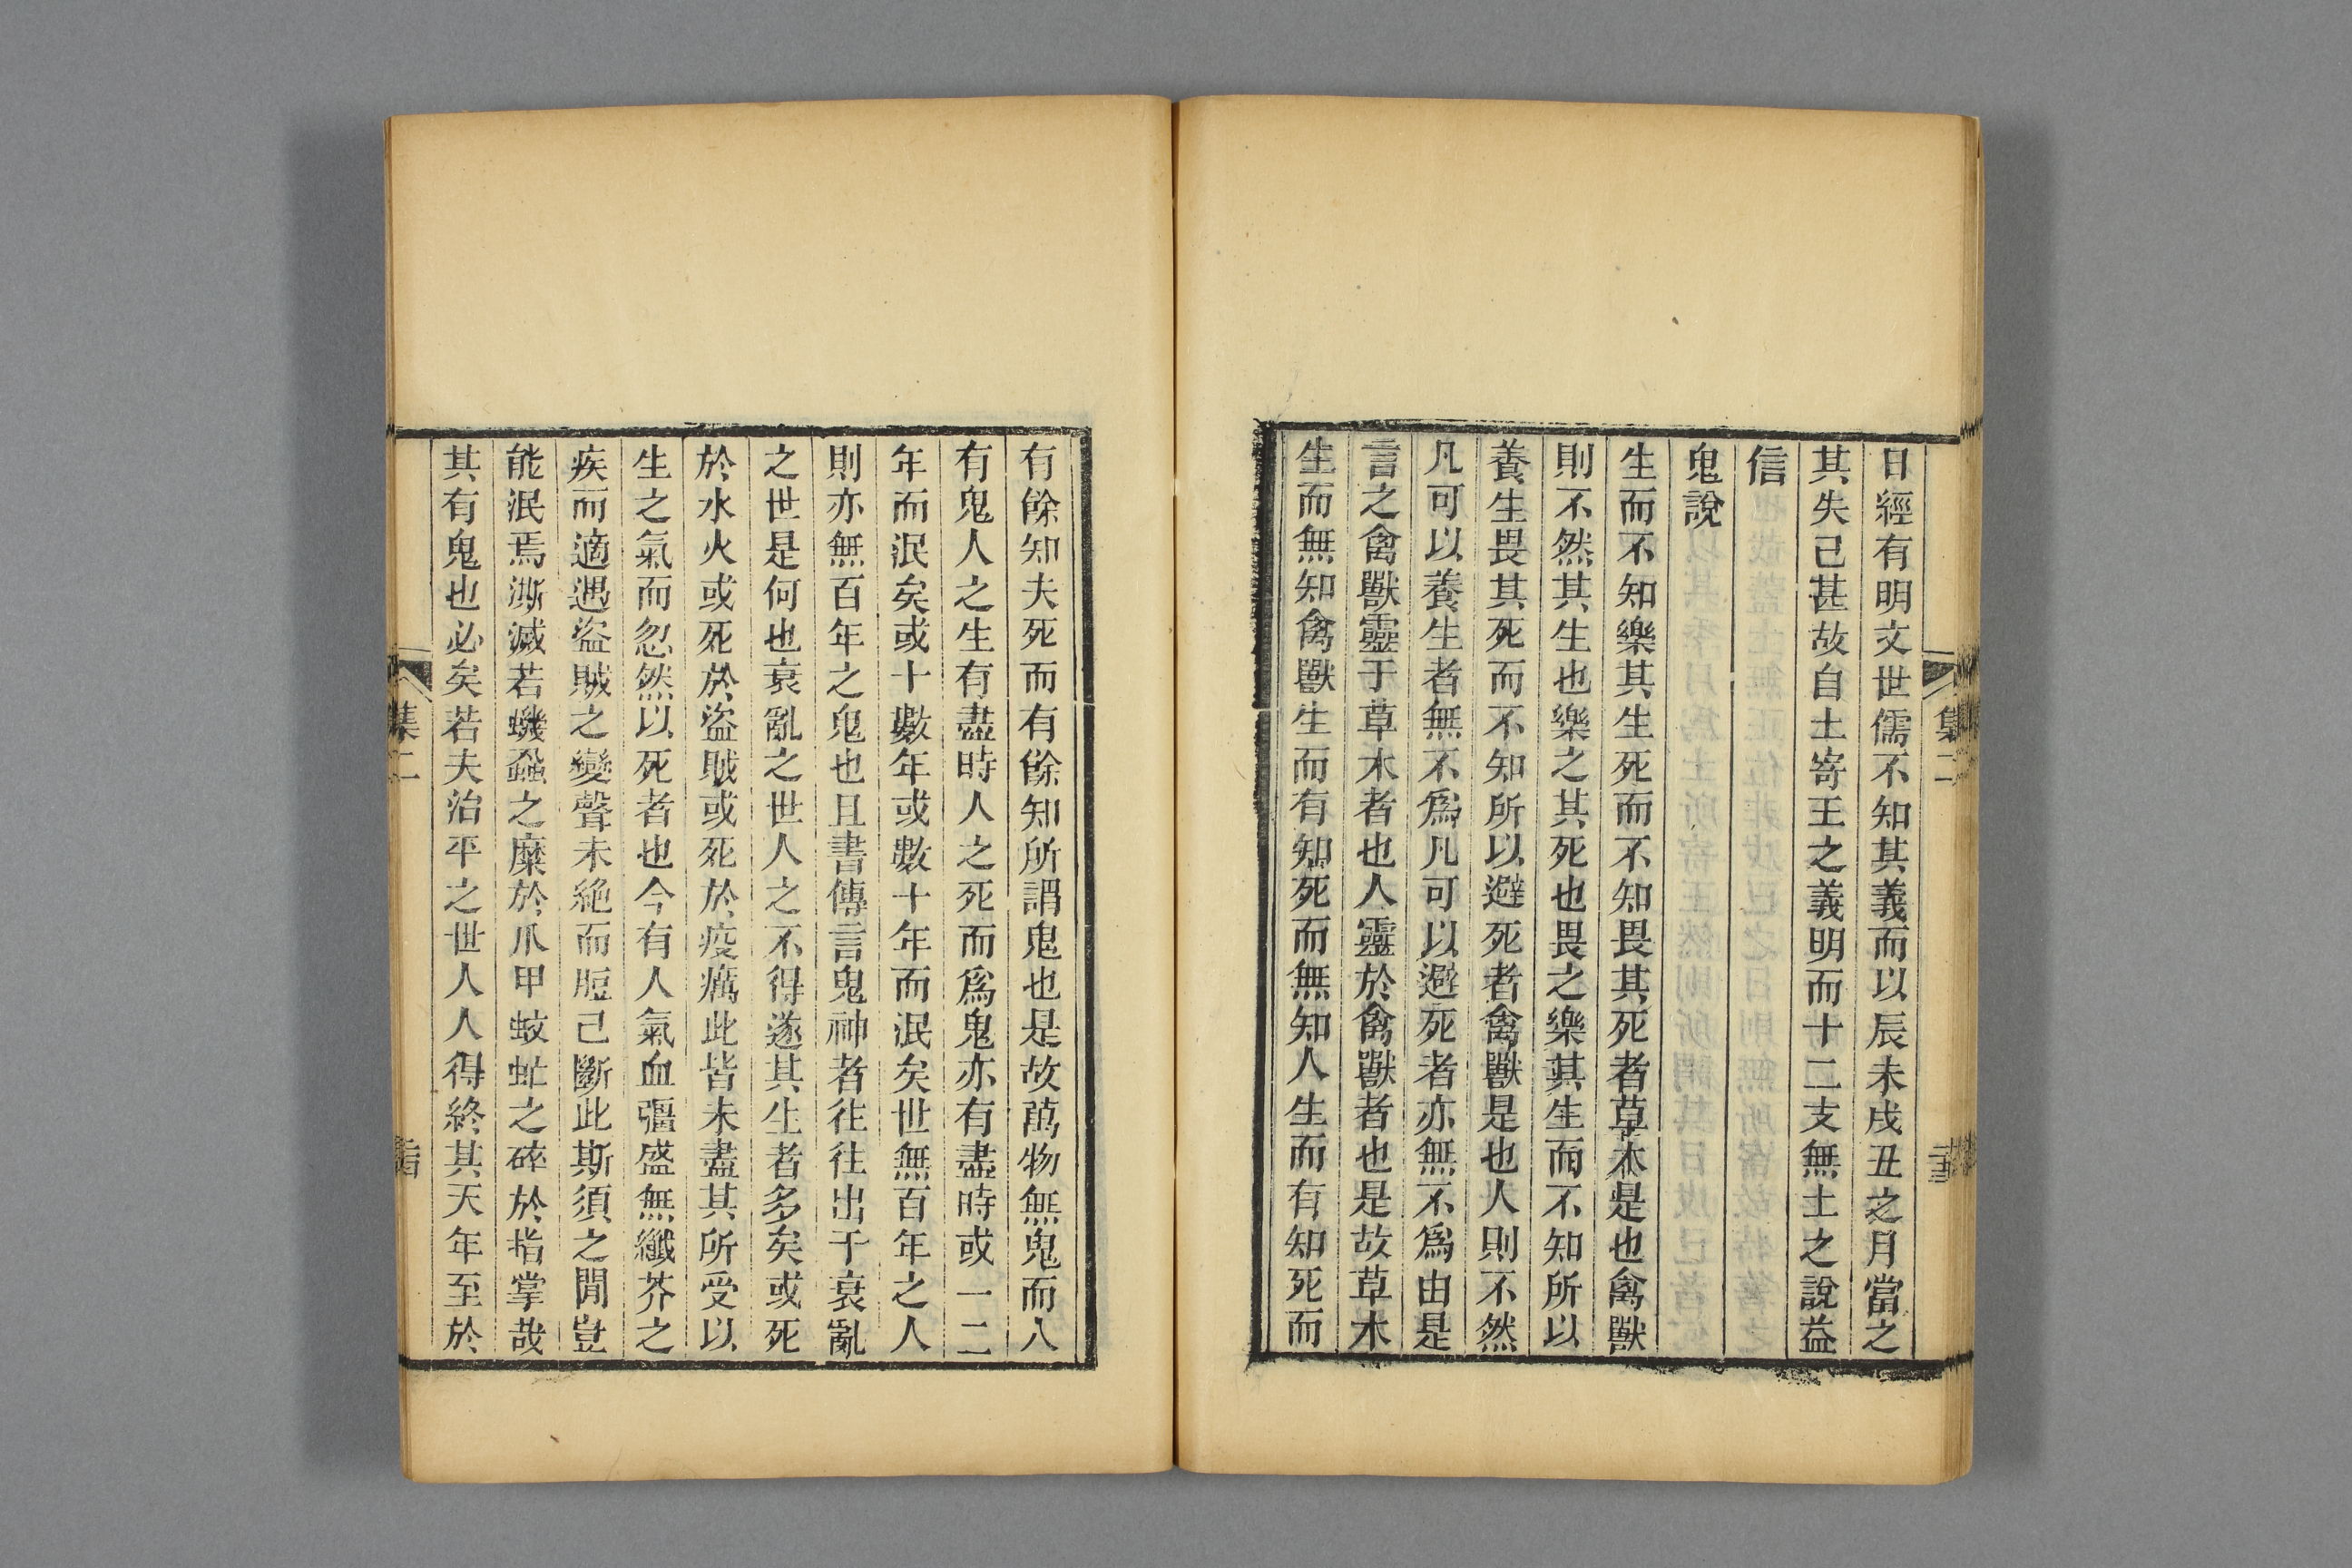 日經有明文世儒不知其義而以辰未戌丑之月當之
其失己甚故自土寄王之義明而十二支無土之說益
信
鬼說
生而不知樂其生死而不知畏其死者草木是也禽獸
則不然其生也樂之其死也畏之樂其生而不知所以
養生畏其死而不知所以避死者禽獸是也人則不然
凡可以養生者無不爲凡可以避死者亦無不爲由是
言之禽獸靈于草木者也人靈於禽獸者也是故草木
生而無知禽獸生而有知死而無知人生而有知死而
集二
有餘知夫死而有餘知所謂鬼也是故萬物無鬼而人
有鬼人之生有盡時人之死而爲鬼亦有盡時或一二
年而泯矣或十數年或數十年而泯矣世無百年之人
則亦無百年之鬼也且書傳言鬼神者往往出于衰亂
之世是何也衰亂之世人之不得遂其生者多矣或死
於水火或死於盜賊或死於疫癘此皆未盡其所受以
生之氣而忽然以死者也今有人氣血彊盛無纖芥之
疾而適遇盜賊之變聲未絶而脰己斷此斯須之閒豈
能泯焉澌滅若蟣蝨之糜於爪甲蚊虻之碎於指掌哉
其有鬼也必矣若夫治平之世人人得終其天年至於
集二